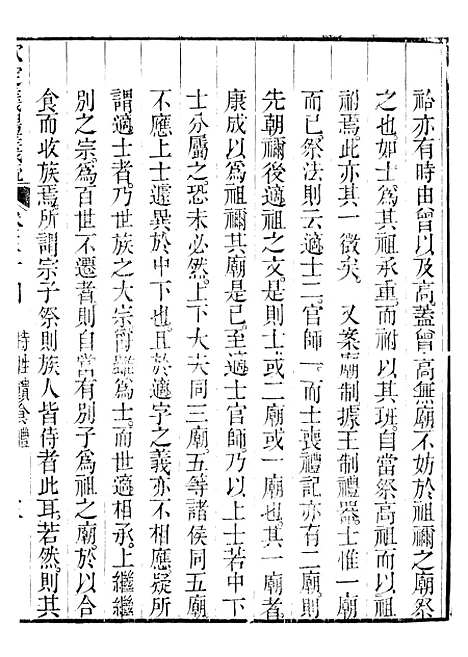 祫亦有時由曾以及高蓋曾高無廟不妨於祖禰之廟祭
之也如士為其祖承重而祔以其班自當祭高祖而以祖
祔焉此亦其一徵矣 又案廟制據王制禮器士惟一廟
而已祭法則云適士二官師一而士喪禮記亦有二廟則
先朝禰後適祖之文是則士或二廟或一廟也其一廟者
康成以為祖禰共廟是已至適士官師乃以上士若中下
士分屬之恐未必然上下大夫同三廟五等諸侯同五廟
不應上士遽異於中下也且於適字之義亦不相應疑所
謂適士者乃世族之大宗身雖為士而世適相承上繼繼
別之宗為百世不遷者則自當有別子為祖之廟於以合
食而收族焉所謂宗子祭則族人皆侍者此耳若然則其
欽定儀禮義疏 特牲饋食禮